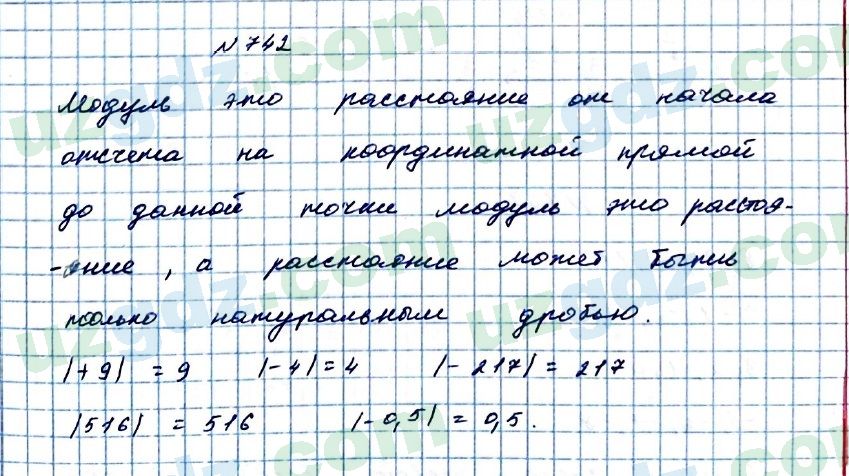 N 742
Модуль это расстояние от начала
отсчета на координатной прямой
до данной точки модуль это расстоя-
-ние, а расстояние может быть
только натуральным дробью.
|+9| = 9 |-4| = 4 |-217| = 217
|516| = 516 |-0,5| = 0,5.
uzgdz.com
uzgdz.com
uzgdz.com
uzgdz.com